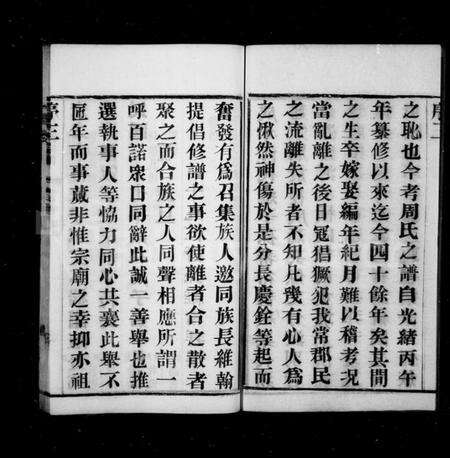 序二
之恥也今考周氏之譜自光緒丙午
年纂修以來迄今四十餘年矣其間
之生卒嫁娶編年紀月難以稽考況
當亂離之後日冦猖獗犯我常郡民
之流離失所者不知凡幾有心人爲
之愀然神傷於是分長慶銓等起而
奮發有爲召集族人邀同族長維翰
提倡修譜之事欲使離者合之散者
聚之而合族之人同聲相應所謂一
呼百諾衆口同辭此誠一善舉也推
選執事人等恊力同心共襄此舉不
匝年而事蕆非惟宗廟之幸抑亦祖
序三